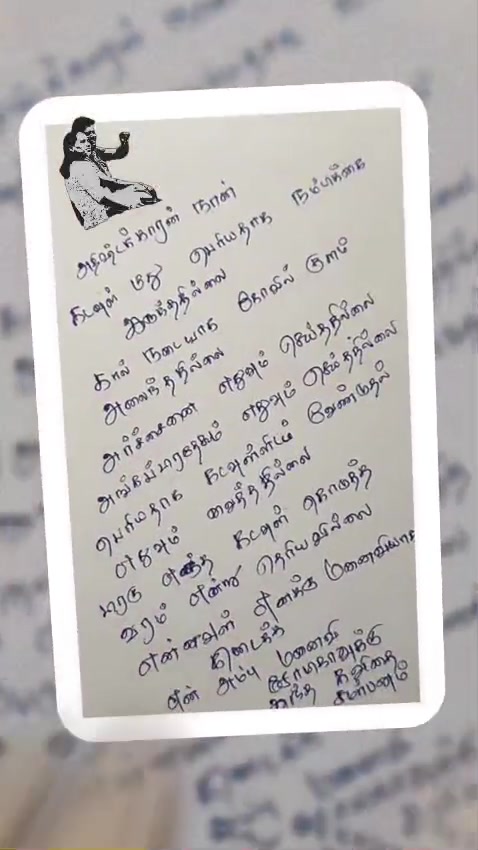 அதிஷ்டக்காரன் நான்
கடவுள் மீது பெரியதாக நம்பிக்கை
இருந்ததில்லை
கால் நடையாக கோவில் குளம்
அலைந்ததில்லை
அர்ச்சனை எதுவும் செய்ததில்லை
அங்கப்பிரதேசம் எதுவும் செய்ததில்லை
பெரியதாக கடவுள்ளிடம் வேண்டுதல்
எதுவும் வைத்ததில்லை
எந்த கடவுள் கொடுத்த
வரம் என்று தெரியவில்லை
என்னவள் எனக்கு மனைவியாக
கிடைக்க
என் அம்பு மனைவி
இந்த கவிதை
சமர்பணம்